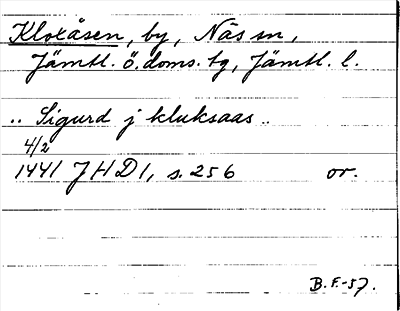 Kloxåsen, by, Näs sn,
Jämtl. ö. doms. tg, Jämtl. l.
.. Sigurd j kluksaas ..
4/2
1441 JHD1, s. 256 or.
B.F.-57.